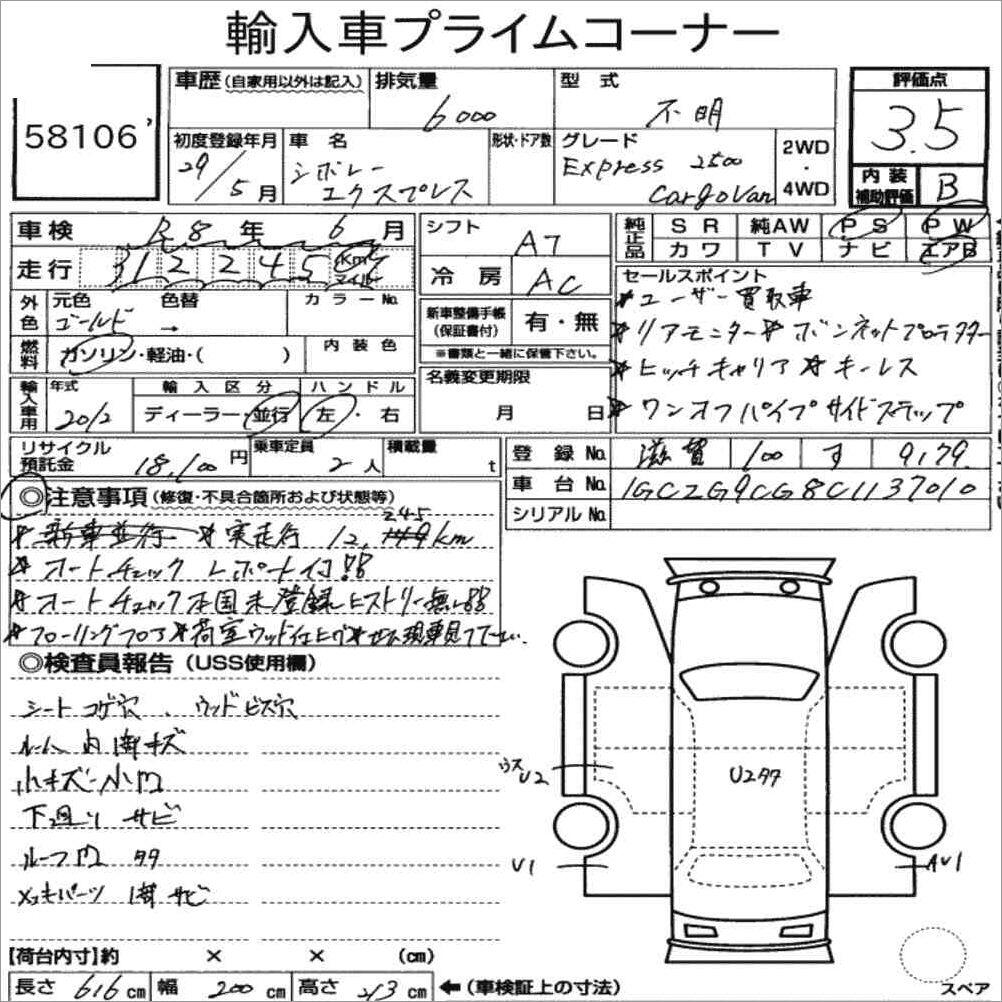 輸入車プライムコーナー
58106
車歴(自家用以外は記入)
排気量
6000
型式
不明
評価点
3.5
初度登録年月
29/5月
車名
シボレー
エクスプレス
形状・ドア数
グレード
Express 2500
CargoVan
2WD
・
4WD
内装
補助評価
B
車検 R8年 6月
走行 312245
Km
マイル
シフト AT
冷房 AC
純正品
SR 純AW PS PW
カワ TV ナビ エアB
外色
元色 色替 カラーNo.
ゴールド →
燃料
ガソリン・軽油・( )
内装色
新車整備手帳
(保証書付)
有・無
※書類と一緒に保管下さい。
セールスポイント
*ユーザー買取車
*リアモニター*ボンネットプロテクター
*ヒッチキャリア*キーレス
*ワンオフパイプサイドステップ
輸入車用
年式 輸入区分 ハンドル
2012 ディーラー・並行 左・右
名義変更期限
月 日
リサイクル
預託金
18,100円
乗車定員
2人
積載量
t
登録No. 滋賀 100 す 9179
車台No. 1GCZG9CG8C1137010
シリアルNo.
◎注意事項(修復・不具合箇所および状態等)
*新車並行 *実走行 12,245km
*オートチェックレポート付!!
*オートチェック本国未登録ヒストリー無し
*フローリングフロア*荷室ウッド仕上げ*ぜひ現車見て下さい。
◎検査員報告(USS使用欄)
シートコゲ穴、ウッドビス穴
ルーム内 キズ
小キズ・小凹
下廻りサビ
ルーフ凹
メッキパーツ サビ
U2
U2
U1
AU1
【荷台内寸】約 × × (cm)
長さ 616cm 幅 200cm 高さ 213cm ←(車検証上の寸法)
スペア